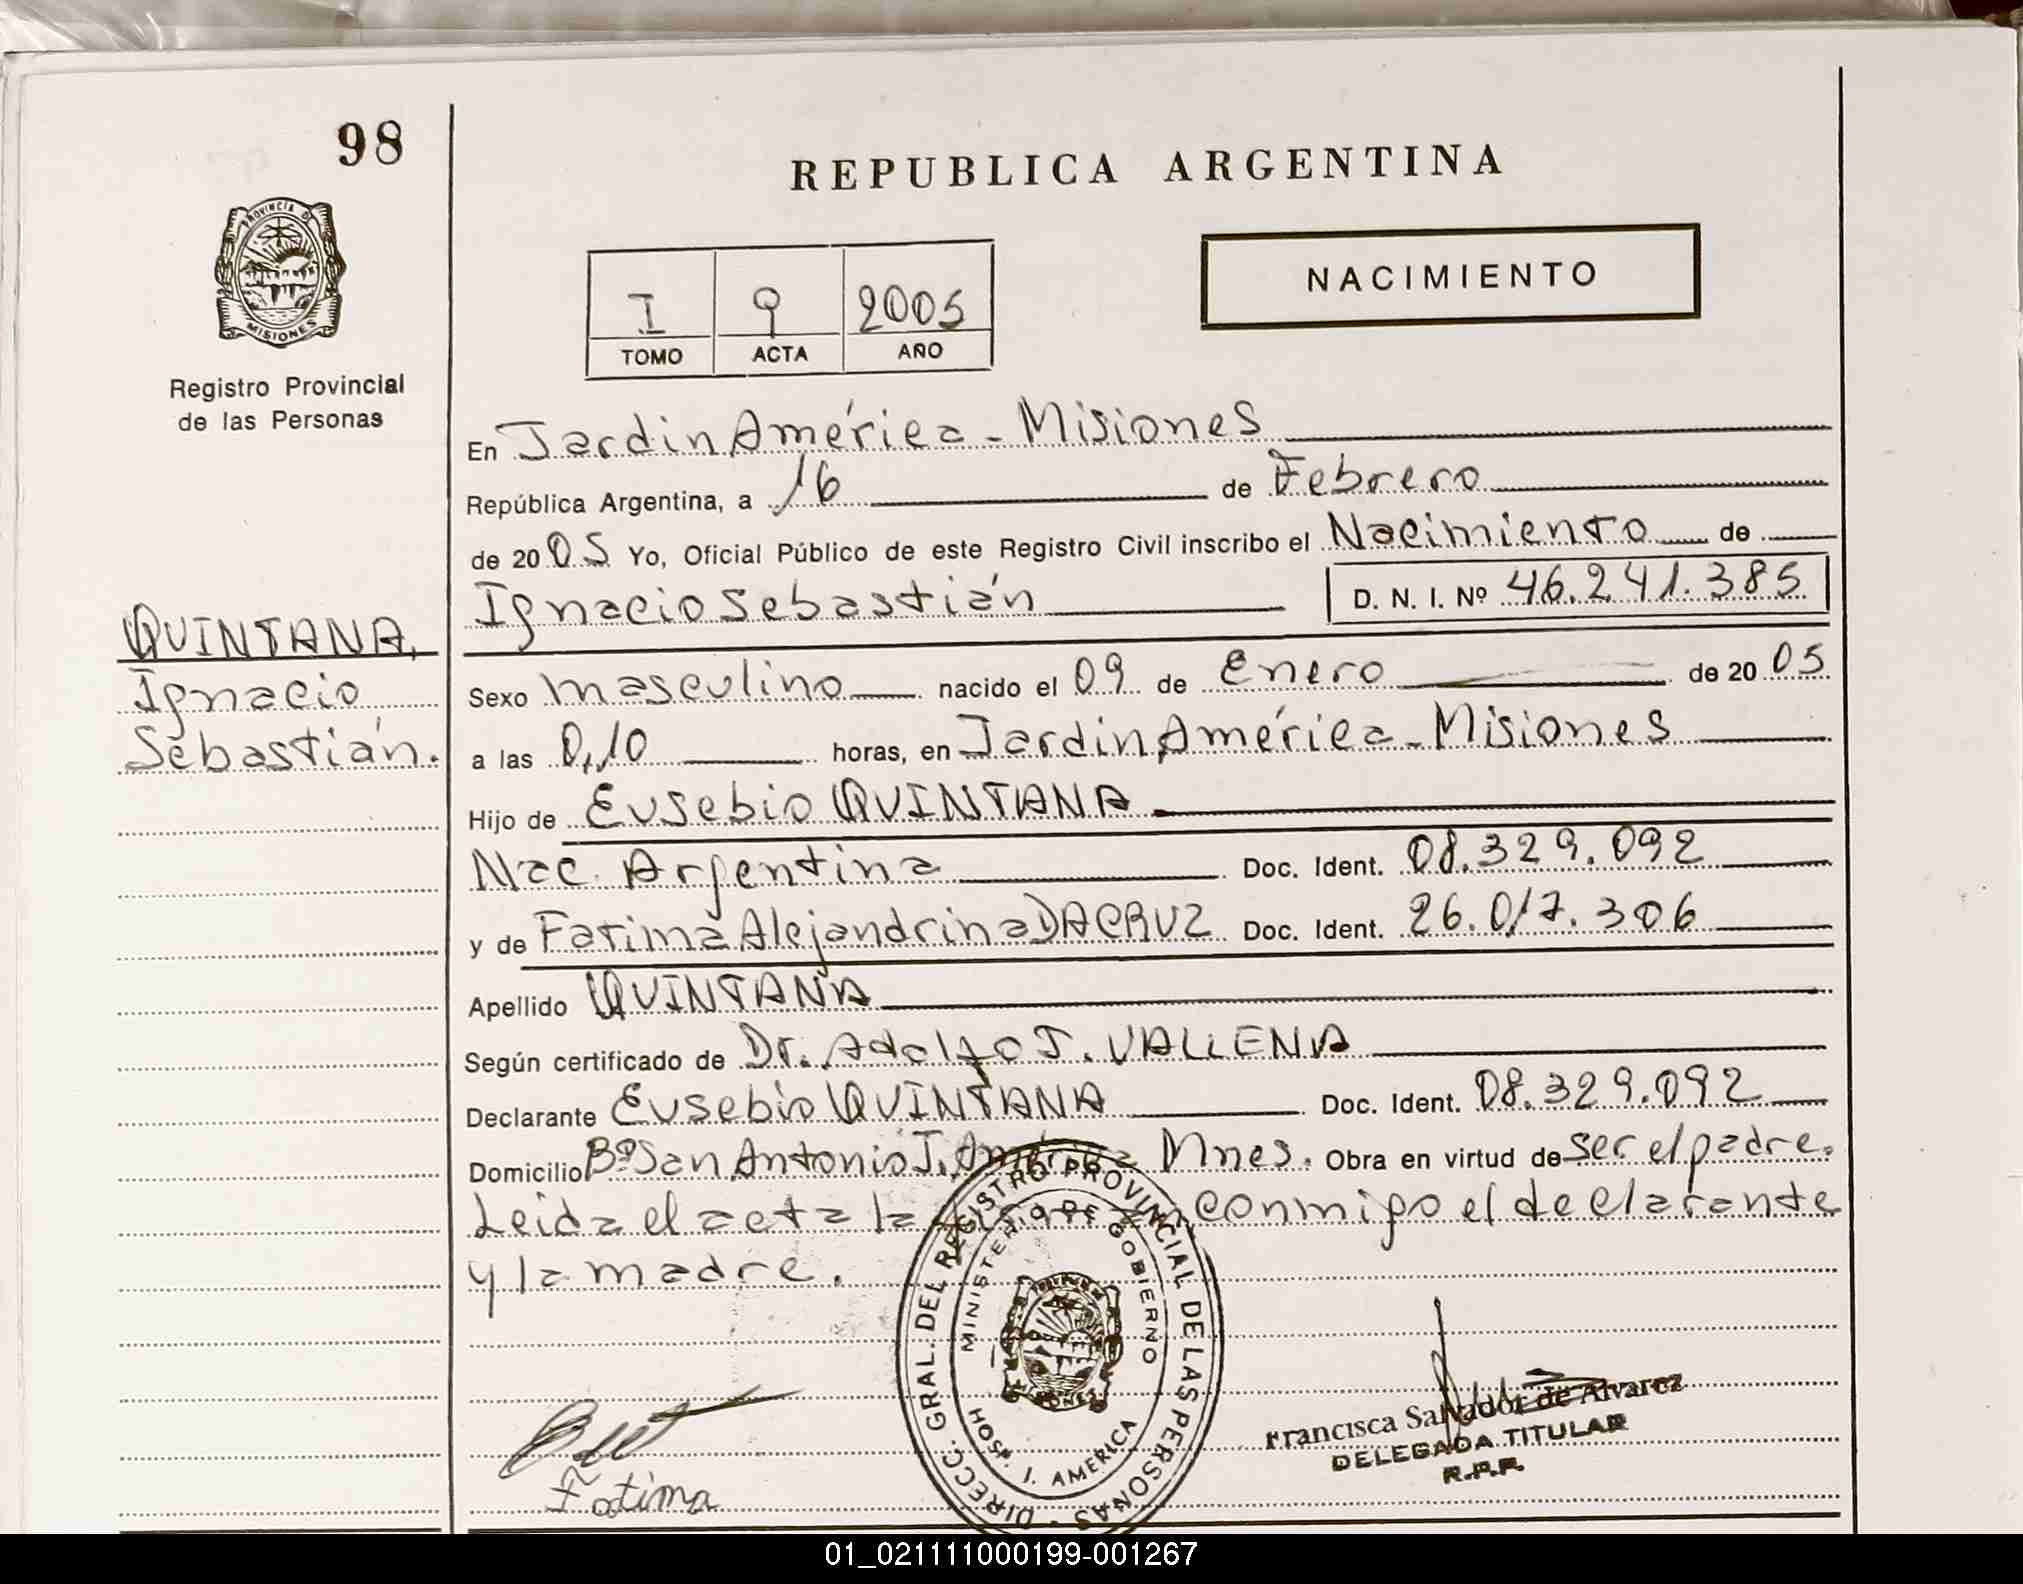 98
REPUBLICA ARGENTINA
PROVINCIA DE
MISIONES
Registro Provincial
de las Personas
I 9 2005
TOMO ACTA AÑO
NACIMIENTO
En Jardin América - Misiones
República Argentina, a 16 de Febrero
de 20 05 Yo, Oficial Público de este Registro Civil inscribo el Nacimiento de
Ignacio Sebastián D. N. I. Nº 46.241.385
QUINTANA,
Ignacio
Sebastián.
Sexo masculino nacido el 09 de Enero de 20 05
a las 0,10 horas, en Jardin América - Misiones
Hijo de Eusebio QUINTANA
Nac. Argentina Doc. Ident. 08.329.092
y de Fatima Alejandrina DA CRUZ Doc. Ident. 26.017.306
Apellido QUINTANA
Según certificado de Dr. Adolfo J. VALLENA
Declarante Eusebio QUINTANA Doc. Ident. 08.329.092
Domicilio Bº San Antonio J. América Mnes. Obra en virtud de ser el padre.
Leida el acta la conmigo el declarante
y la madre.
DIRECC. GRAL. DEL REGISTRO PROVINCIAL DE LAS PERSONAS -
MINISTERIO DE GOBIERNO
HOSP. J. AMERICA
Francisca Salvador de Alvarez
DELEGADA TITULAR
R.P.P.
Fatima
01_021111000199-001267